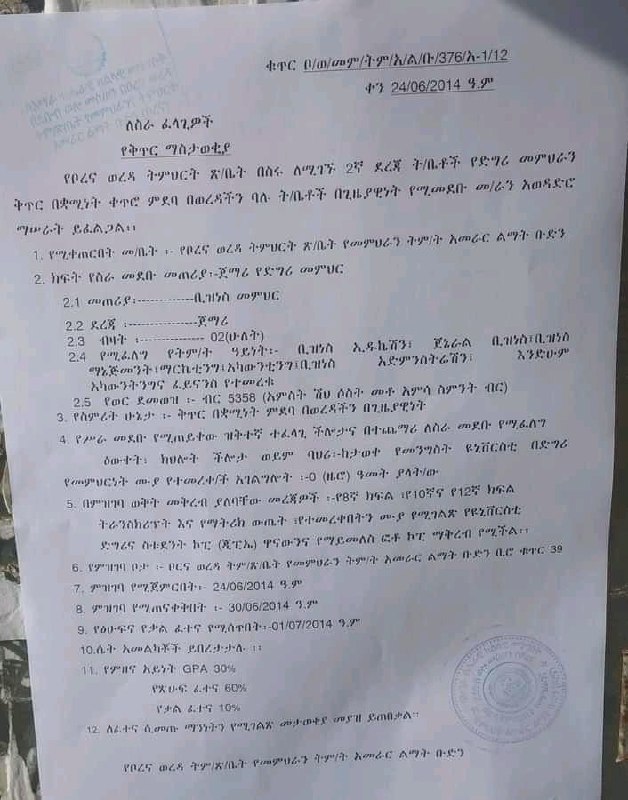 ቁጥር ቦ/ወ/መም/ትም/አ/ል/ቡ/376/አ-1/12
ቀን 24/06/2014 ዓ.ም
ለስራ ፈላጊዎች
የቅጥር ማስታወቂያ
የቦረና ወረዳ ትምህርት ጽ/ቤት በስሩ ለሚገኙ 2ኛ ደረጃ ት/ቤቶች የድግሪ መምህራን
ቅጥር በቋሚነት ቀጥሮ ምደባ በወረዳችን ባሉ ት/ቤቶች በጊዜያዊነት የሚመደቡ መ/ራን አወዳድሮ
ማሠራት ይፈልጋል፡፡
1. የሚቀጠርበት መ/ቤት ፡- የቦረና ወረዳ ትምህርት ጽ/ቤት የመምህራን ትም/ት አመራር ልማት ቡድን
2. ክፍት የስራ መደቡ መጠሪያ፡-ጀማሪ የድግሪ መምህር
2.1 መጠሪያ፡--------------ቢዝነስ መምህር
2.2 ደረጃ ፡---------------ጀማሪ
2.3 ብዛት ፡---------------- 02(ሁለት)
2.4 የሚፈለግ የትም/ት ዓይነት፡- ቢዝነስ ኢዱኬሽን፣ ጀኔራል ቢዝነስ፣ቢዝነስ
ማኔጅመንት፣ማርኬቲንግ፣አካውንቲንግ፣ቢዝነስ አድምንስትሬሽን፣ እንድሁም
አካውንትንግና ፈይናንስ የተመረቁ
2.5 የወር ደመወዝ ፡- ብር 5358 (አምስት ሽህ ሶስት መቶ አምሳ ስምንት ብር)
3. የስምሪት ሁኔታ ፡- ቅጥር በቋሚነት ምደባ በወረዳችን በጊዜያዊነት
4. የሥራ መደቡ የሚጠይቀው ዝቅተኛ ተፈላጊ ችሎታና በተጨማሪ ለስራ መደቡ የማፈለግ
ዕውቀት፣ ክህሎት ችሎታ ወይም ባህሪ፡-ከታወቀ የመንግስት ዩኒቨርስቲ በድግሪ
የመምህርነት ሙያ የተመረቀ/ች አገልግሎት ፡-0 (ዜሮ) ዓመት ያላት/ው
5. በምዝገባ ወቅት መቅረብ ያለባቸው መረጃዎች ፡-የ8ኛ ክፍል ፣የ10ኛና የ12ኛ ክፍል
ትራንስክሪፕት እና የማትሪክ ውጤት ፣የተመረቀበትን ሙያ የሚገልጽ የዩኒቨርስቲ
ድግሪና ስቱደንት ኮፒ (ጂፒኤ) ዋናውንና የማይመለስ ፎቶ ኮፒ ማቅረብ የሚችል፡፡
6. የምዝገባ ቦታ ፡- ቦርና ወረዳ ትም/ጽ/ቤት የመምህራን ትም/ት አመራር ልማት ቡድን ቢሮ ቁጥር 39
7. ምዝገባ የማጀምርበት፡- 24/06/2014 ዓ.ም
8. ምዝገባ የማጠናቀቅበት ፡- 30/06/2014 ዓ.ም
9. የፅሁፍና የቃል ፈተና የሚሰጥበት፡-01/07/2014 ዓ.ም
10.ሴት አመልካቾች ይበረታታሉ ፡፡
11. የምዘና አይነት GPA 30%
የጽሁፍ ፈተና 60%
የቃል ፈተና 10%
12. ለፈተና ሲመጡ ማንነትን የሚገልጽ መታወቀያ መያዝ ይጠበቃል፡፡
የቦረና ወረዳ ትም/ጽ/ቤት የመምህራን ትም/ት አመራር ልማት ቡድን